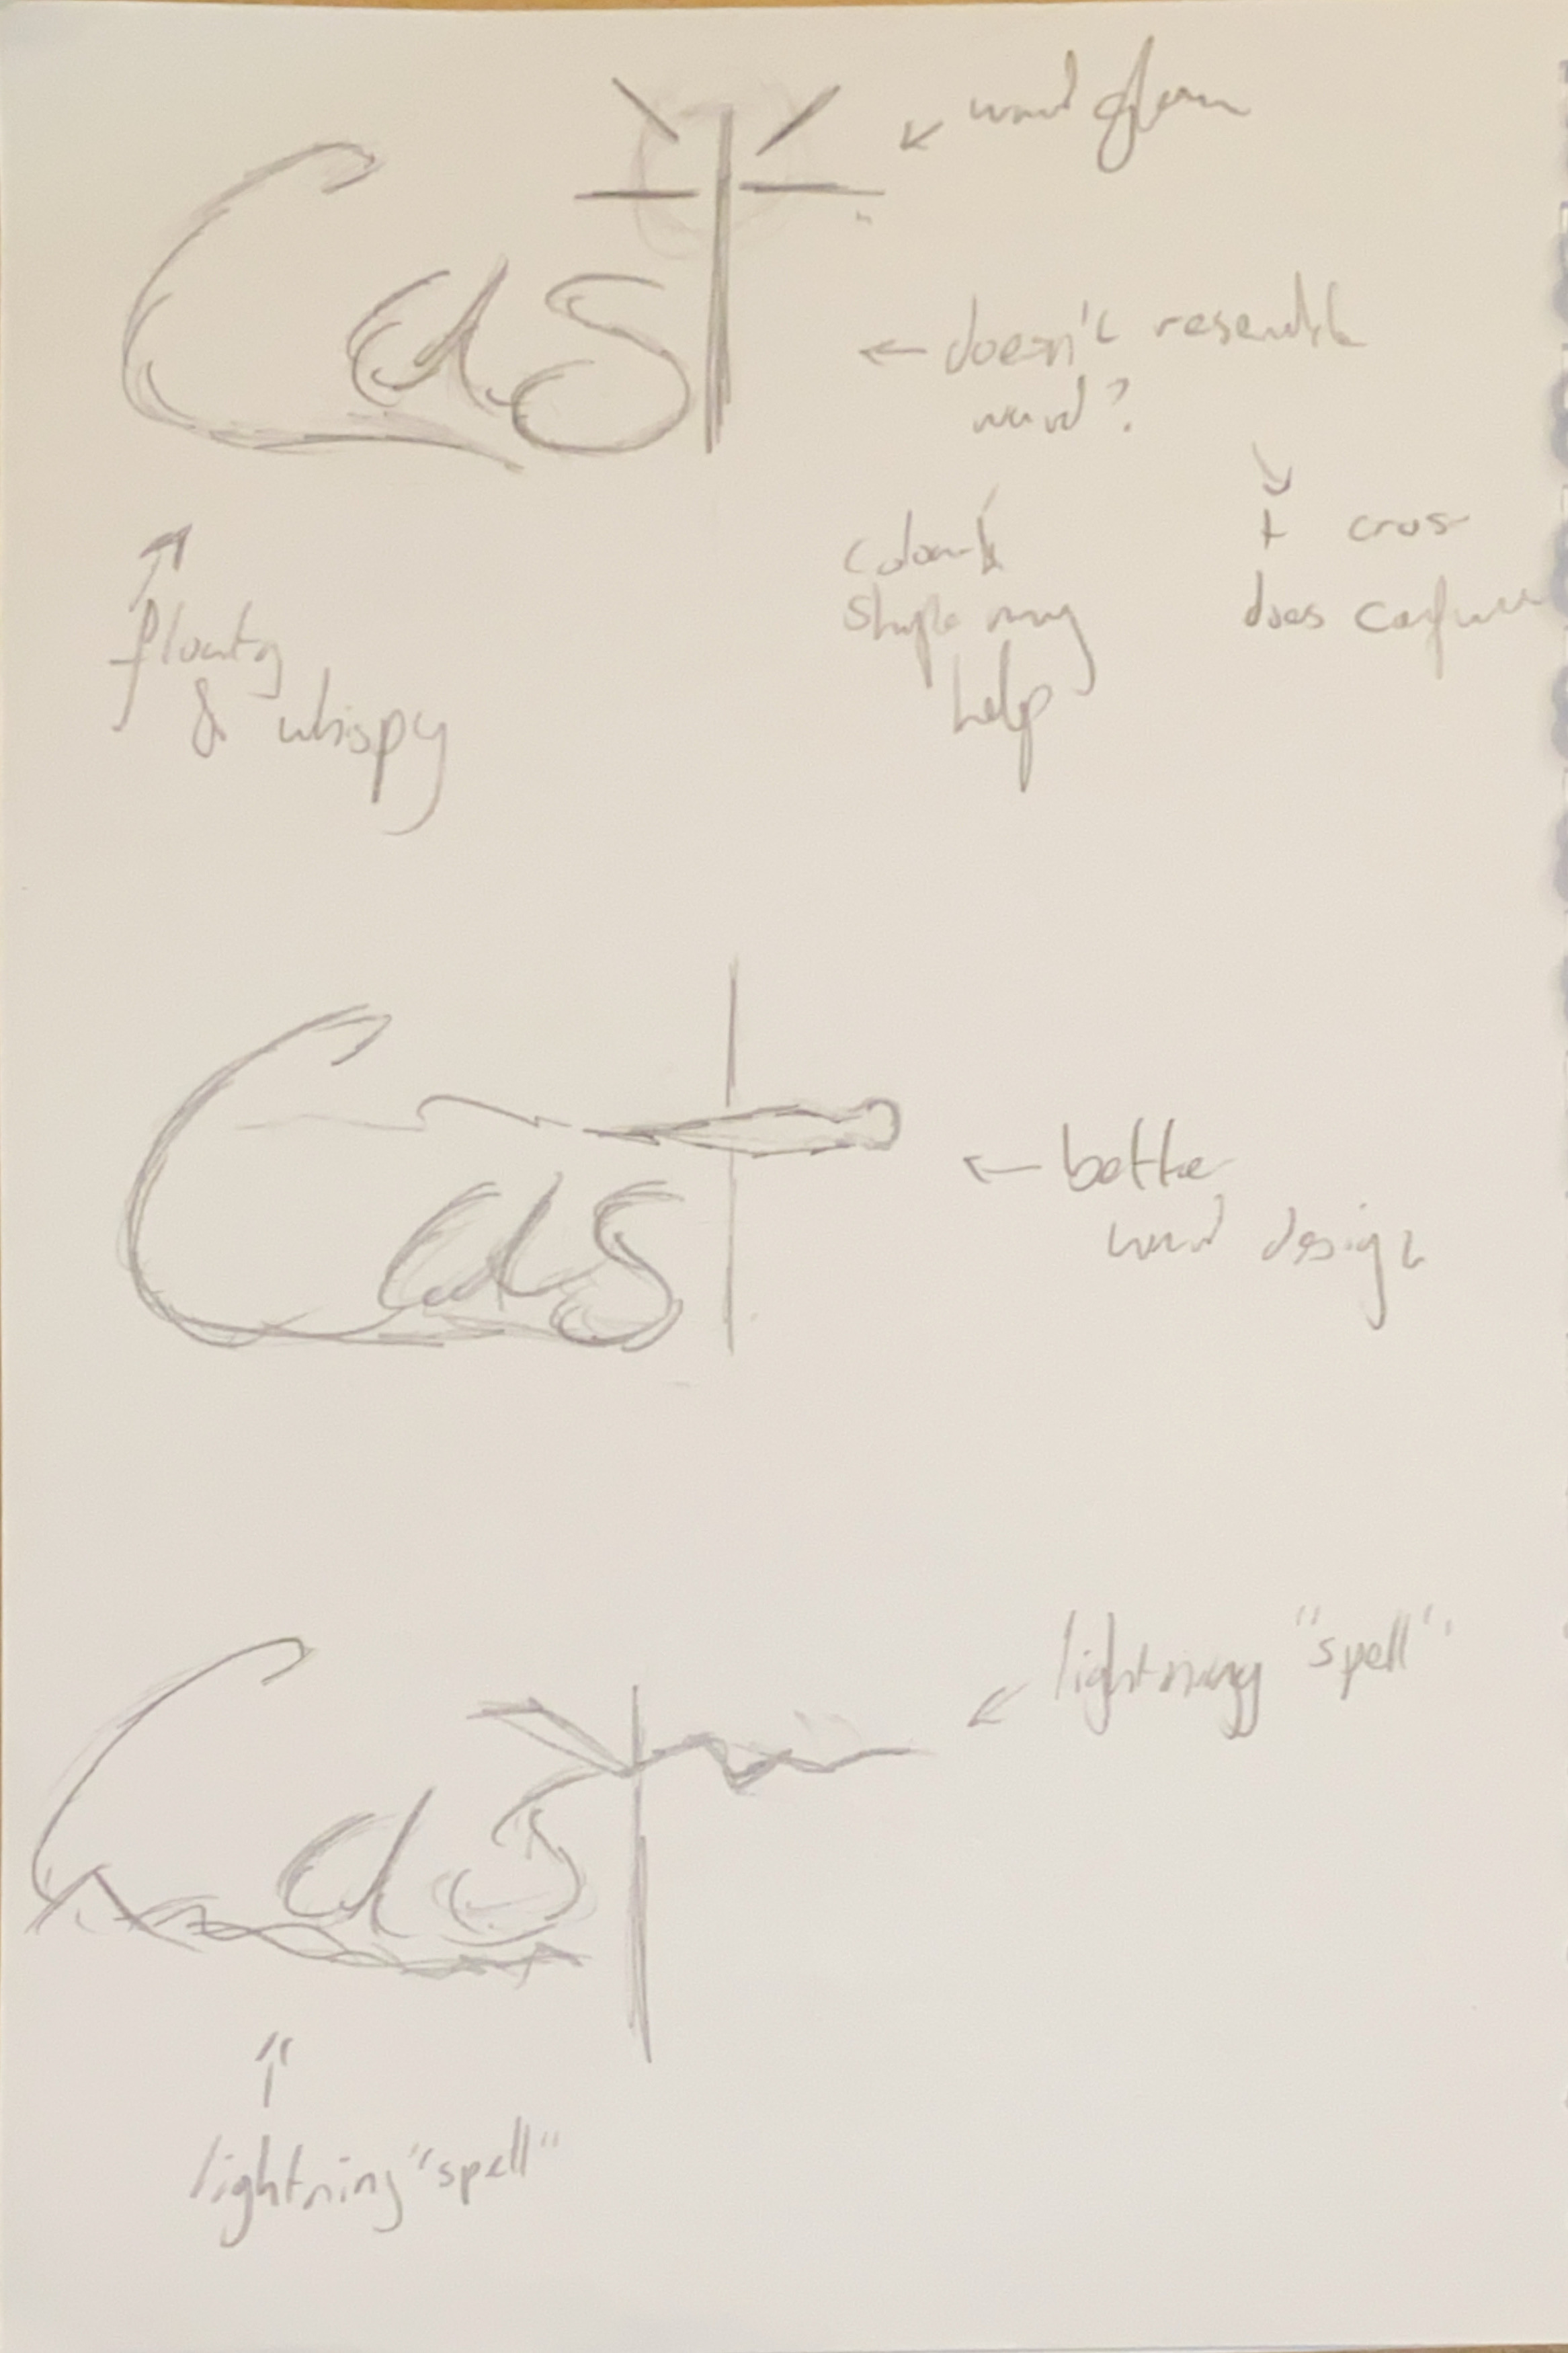 Cast
wand gleam
doesn't resemble
wand?
colour &
shape may
help
t cross
does confuse
floaty
& whispy
Cast
better
wand design
Cast
lightning "spell"
lightning "spell"